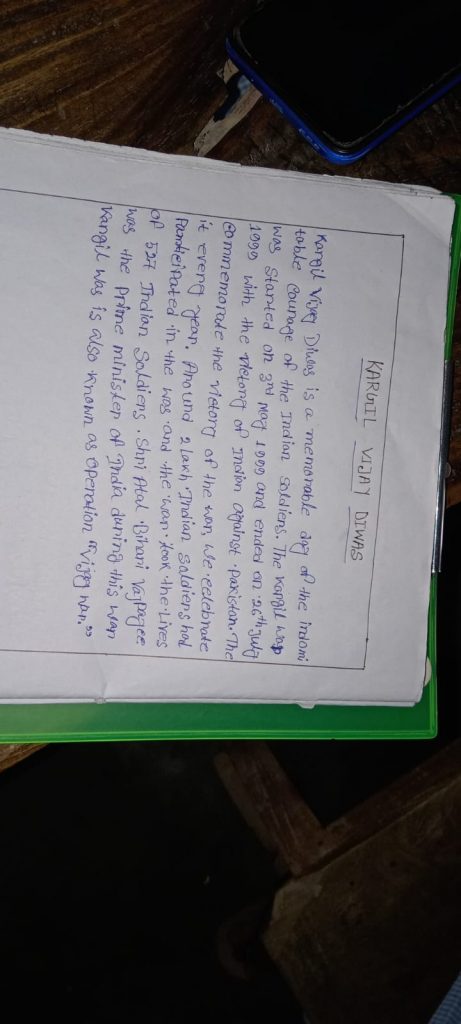 KARGIL VIJAY DIWAS
Kargil Vijay Diwas is a memorable day of the indomi
table courage of the Indian soldiers. The Kargil war
was started on 3rd May 1999 and ended on 26th July
1999 with the victory of Indian against pakistan. The
commemorate the victory of the war, we celebrate
it every year. Around 2 lakh Indian soldiers had
Participated in the was and the war took the Lives
of 527 Indian Soldiers. Shri Atal Bihari Vajpayee
was the Prime minister of India during this war
Kargil was is also known as operation "vijay war."